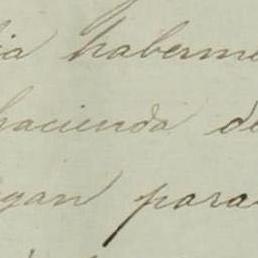 ia haberme
hacienda de
gan para